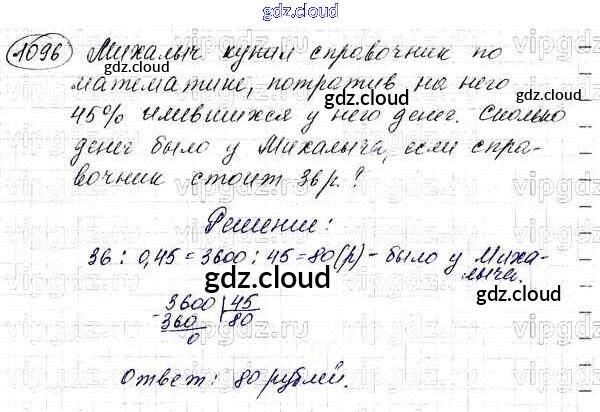 gdz.cloud
1096 Михалыч купил справочник по
математике, потратив на него
gdz.cloud gdz.cloud
45% имевшихся у него денег. Сколько
денег было у Михалыча, если спра-
вочник стоит 36 р.?
gdz.cloud gdz.cloud
Решение:
36 : 0,45 = 3600 : 45 = 80 (р) - было у Миха-
лыча.
gdz.cloud
3600 45
- 360 80
0
gdz.cloud
gdz.cloud
Ответ: 80 рублей.
gdz.cloud